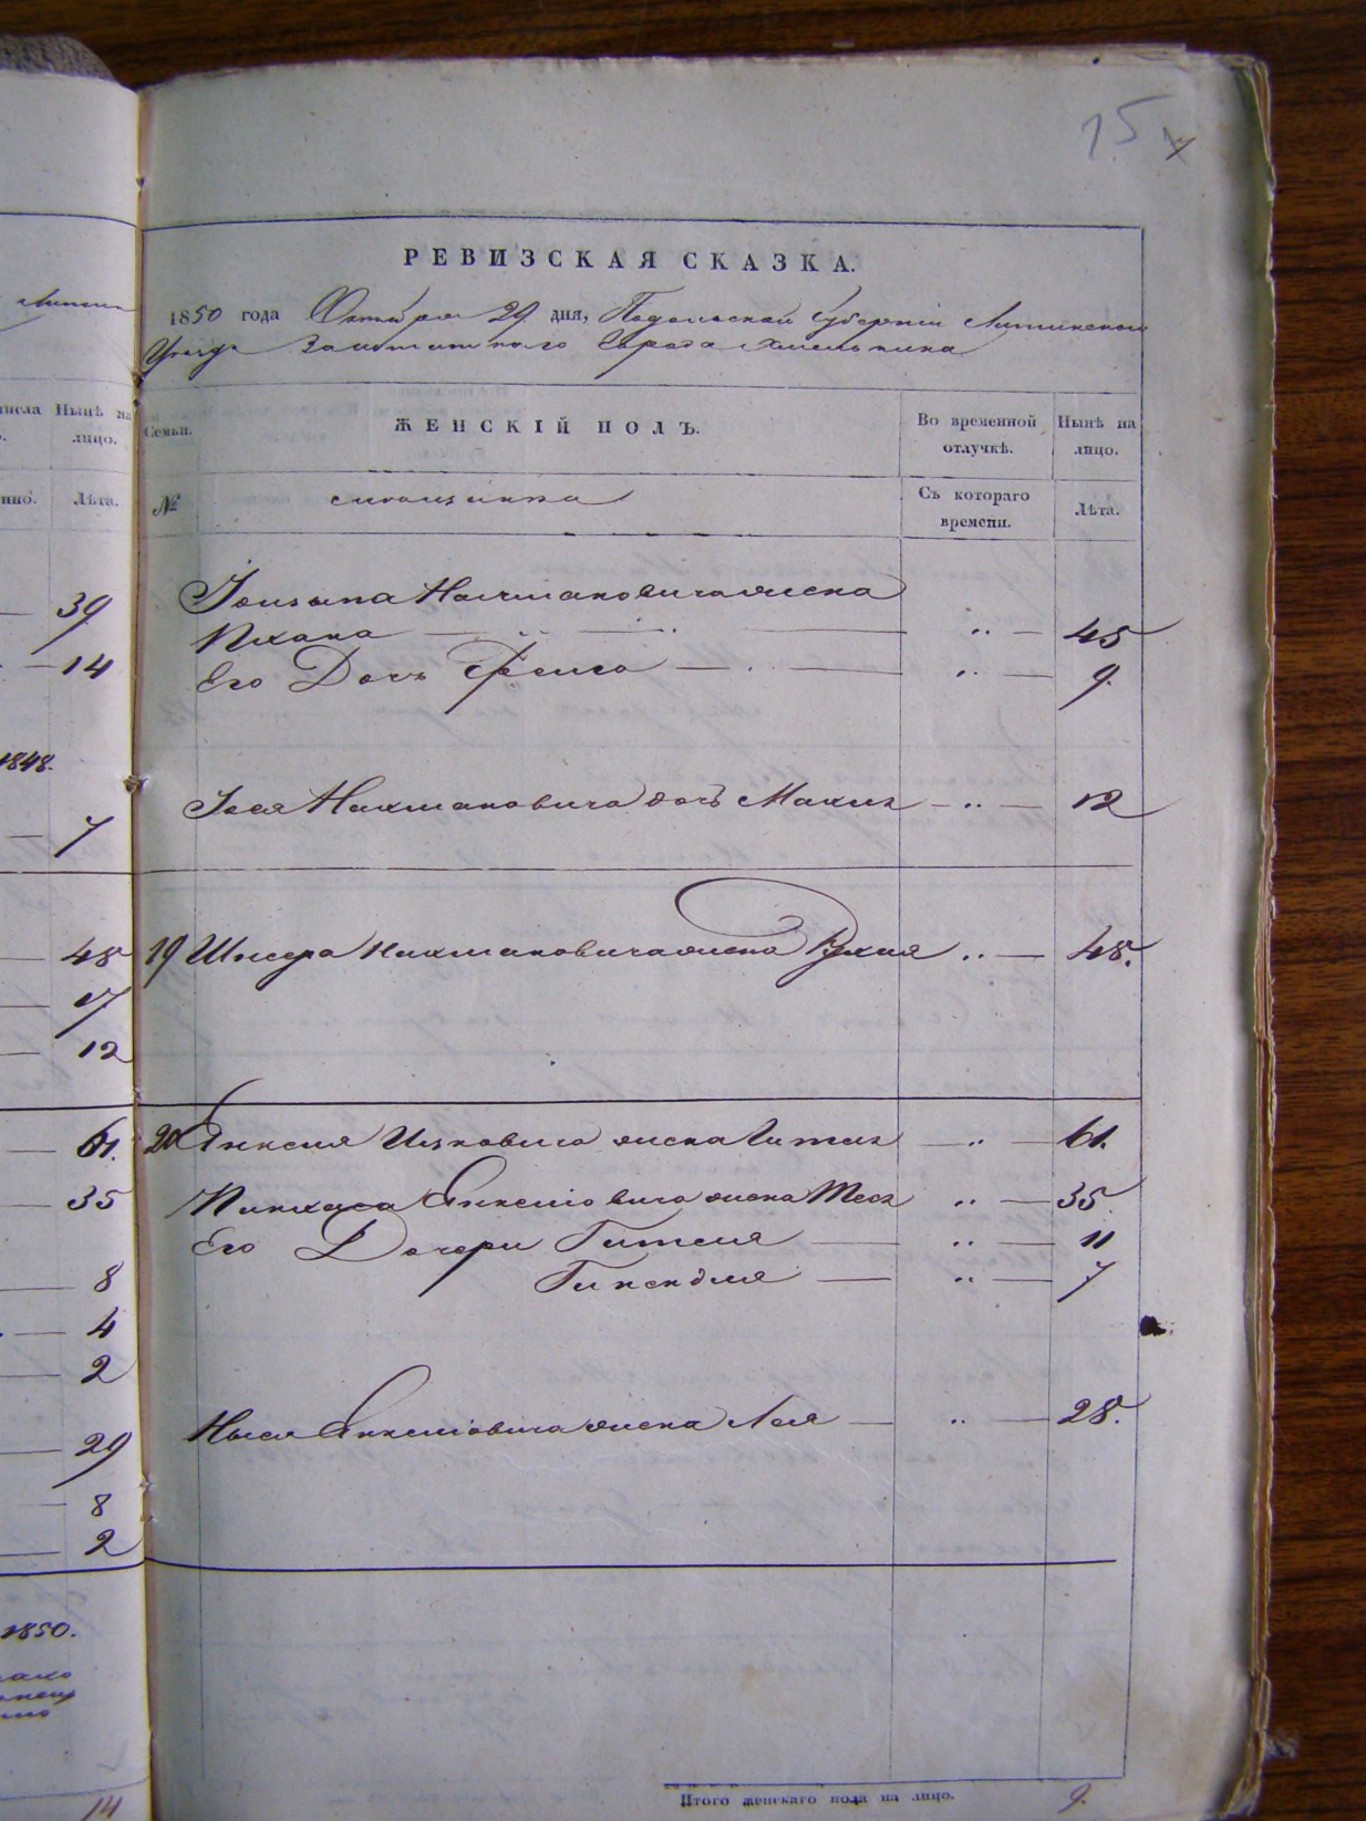 15
РЕВИЗСКАЯ СКАЗКА.
1850 года Октября 29 дня, Подольской Губернiи Литинского
Уезда Заштатного Города Хмельника
числа
Нынѣ на лицо.
Лѣта.
Семьи.
ЖЕНСКIЙ ПОЛЪ.
Во временной отлучкѣ.
Нынѣ на лицо.
№
Съ котораго времени.
Лѣта.
39
14
1848.
7
48
17
12
61.
35
8
4
2
29
8
2
1850.
14
Нахмановича жена
45
Его Дочь Фейга 9.
Нахмановича дочь 12
19 Нахмановича жена Рухля 48.
20 Янкеля Ицковича жена 61.
Пинхаса Янкелiовича жена 35.
Его Дочери Гитля 11
7
Янкелiовича жена Лея 28.
Итого женскаго пола на лицо. 9.